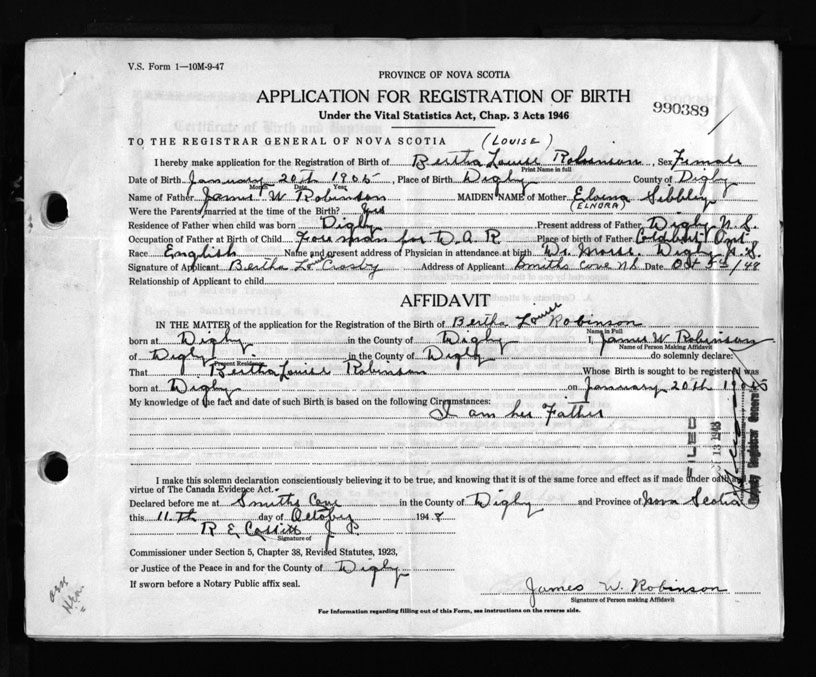 V.S. Form 1—10M-9-47
PROVINCE OF NOVA SCOTIA
APPLICATION FOR REGISTRATION OF BIRTH
990389
Under the Vital Statistics Act, Chap. 3 Acts 1946
TO THE REGISTRAR GENERAL OF NOVA SCOTIA (LOUISE)
I hereby make application for the Registration of Birth of Bertha Louise Robinson, Sex Female
Print Name in full
Date of Birth January 20th 1905, Place of Birth Digby County of Digby
Month Date Year
Name of Father James W Robinson MAIDEN NAME of Mother Elvina Sibbley
(ELNORA)
Were the Parents married at the time of the Birth? Yes
Residence of Father when child was born Digby Present address of Father Digby N.S.
Occupation of Father at Birth of Child Foreman for D.A.R Place of birth of Father Ont
Race English Name and present address of Physician in attendance at birth Dr. Morse Digby N.S.
Signature of Applicant Bertha Louise Crosby Address of Applicant Smiths Cove NS Date Oct 5th/48
Relationship of Applicant to child
AFFIDAVIT
IN THE MATTER of the application for the Registration of the Birth of Bertha Louise Robinson
Name in Full
born at Digby in the County of Digby I, James W Robinson
Name of Person Making Affidavit
of Digby in the County of Digby do solemnly declare:
Present Residence
That Bertha Louise Robinson Whose Birth is sought to be registered was
born at Digby on January 20th 1905
My knowledge of the fact and date of such Birth is based on the following Circumstances:
I am her Father
FILED
13 1948
Deputy Registrar General
I make this solemn declaration conscientiously believing it to be true, and knowing that it is of the same force and effect as if made under oath by
virtue of The Canada Evidence Act.
Declared before me at Smiths Cove in the County of Digby and Province of Nova Scotia
this 11th day of October 1948
R E Cossitt J P.
Signature of
Commissioner under Section 5, Chapter 38, Revised Statutes, 1923,
or Justice of the Peace in and for the County of Digby
If sworn before a Notary Public affix seal.
James W. Robinson
Signature of Person making Affidavit
For Information regarding filling out of this Form, see instructions on the reverse side.